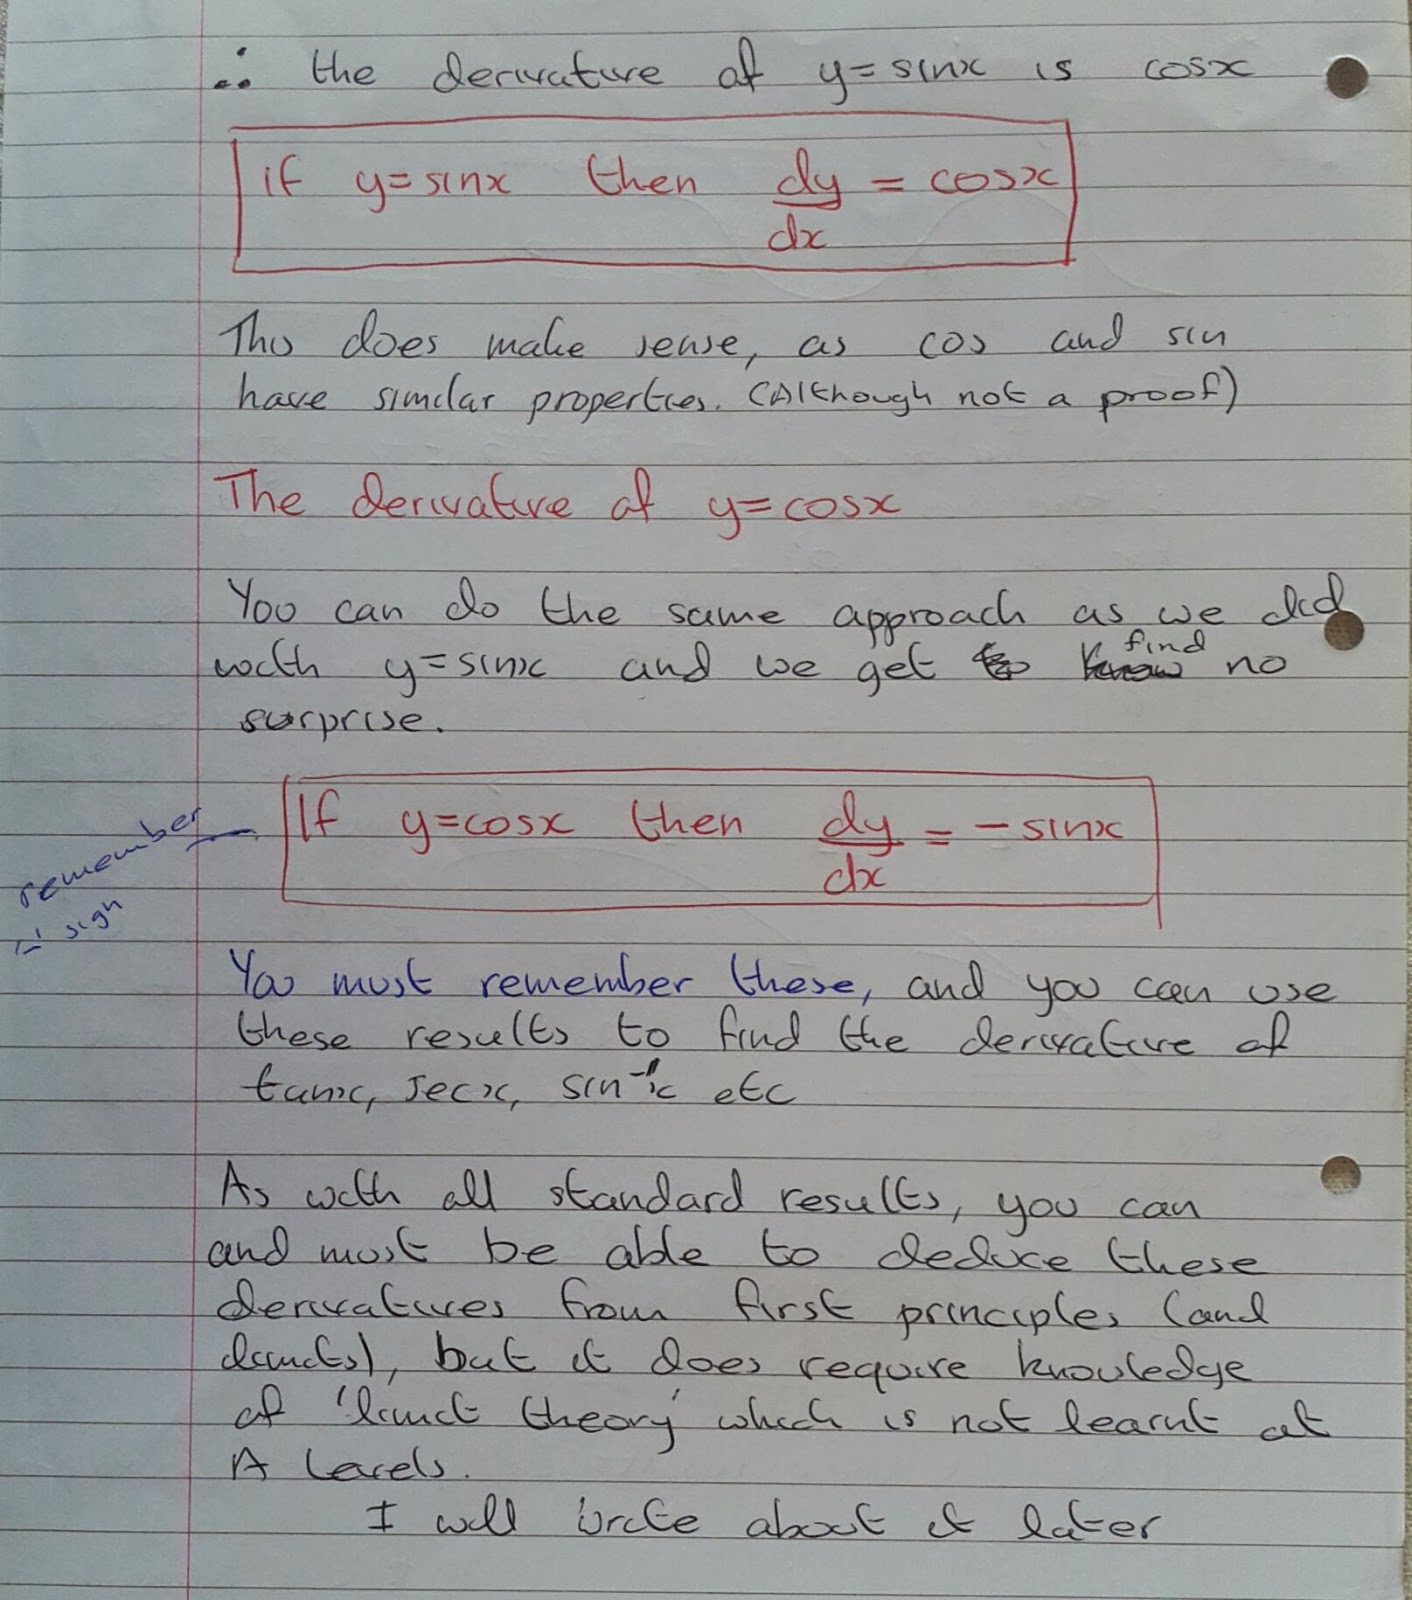 ∴ the derivative of y=sinx is cosx
if y=sinx then dy/dx = cosx
This does make sense, as cos and sin
have similar properties. (Although not a proof)
The derivative of y=cosx
You can do the same approach as we did
with y=sinx and we get find no
surprise.
If y=cosx then dy/dx = -sinx
remember
'-' sign
You must remember these, and you can use
these results to find the derivative of
tanx, secx, sin⁻¹x etc
As with all standard results, you can
and must be able to deduce these
derivatives from first principles (and
limits), but it does require knowledge
of 'limit theory' which is not learnt at
A levels.
I will write about it later